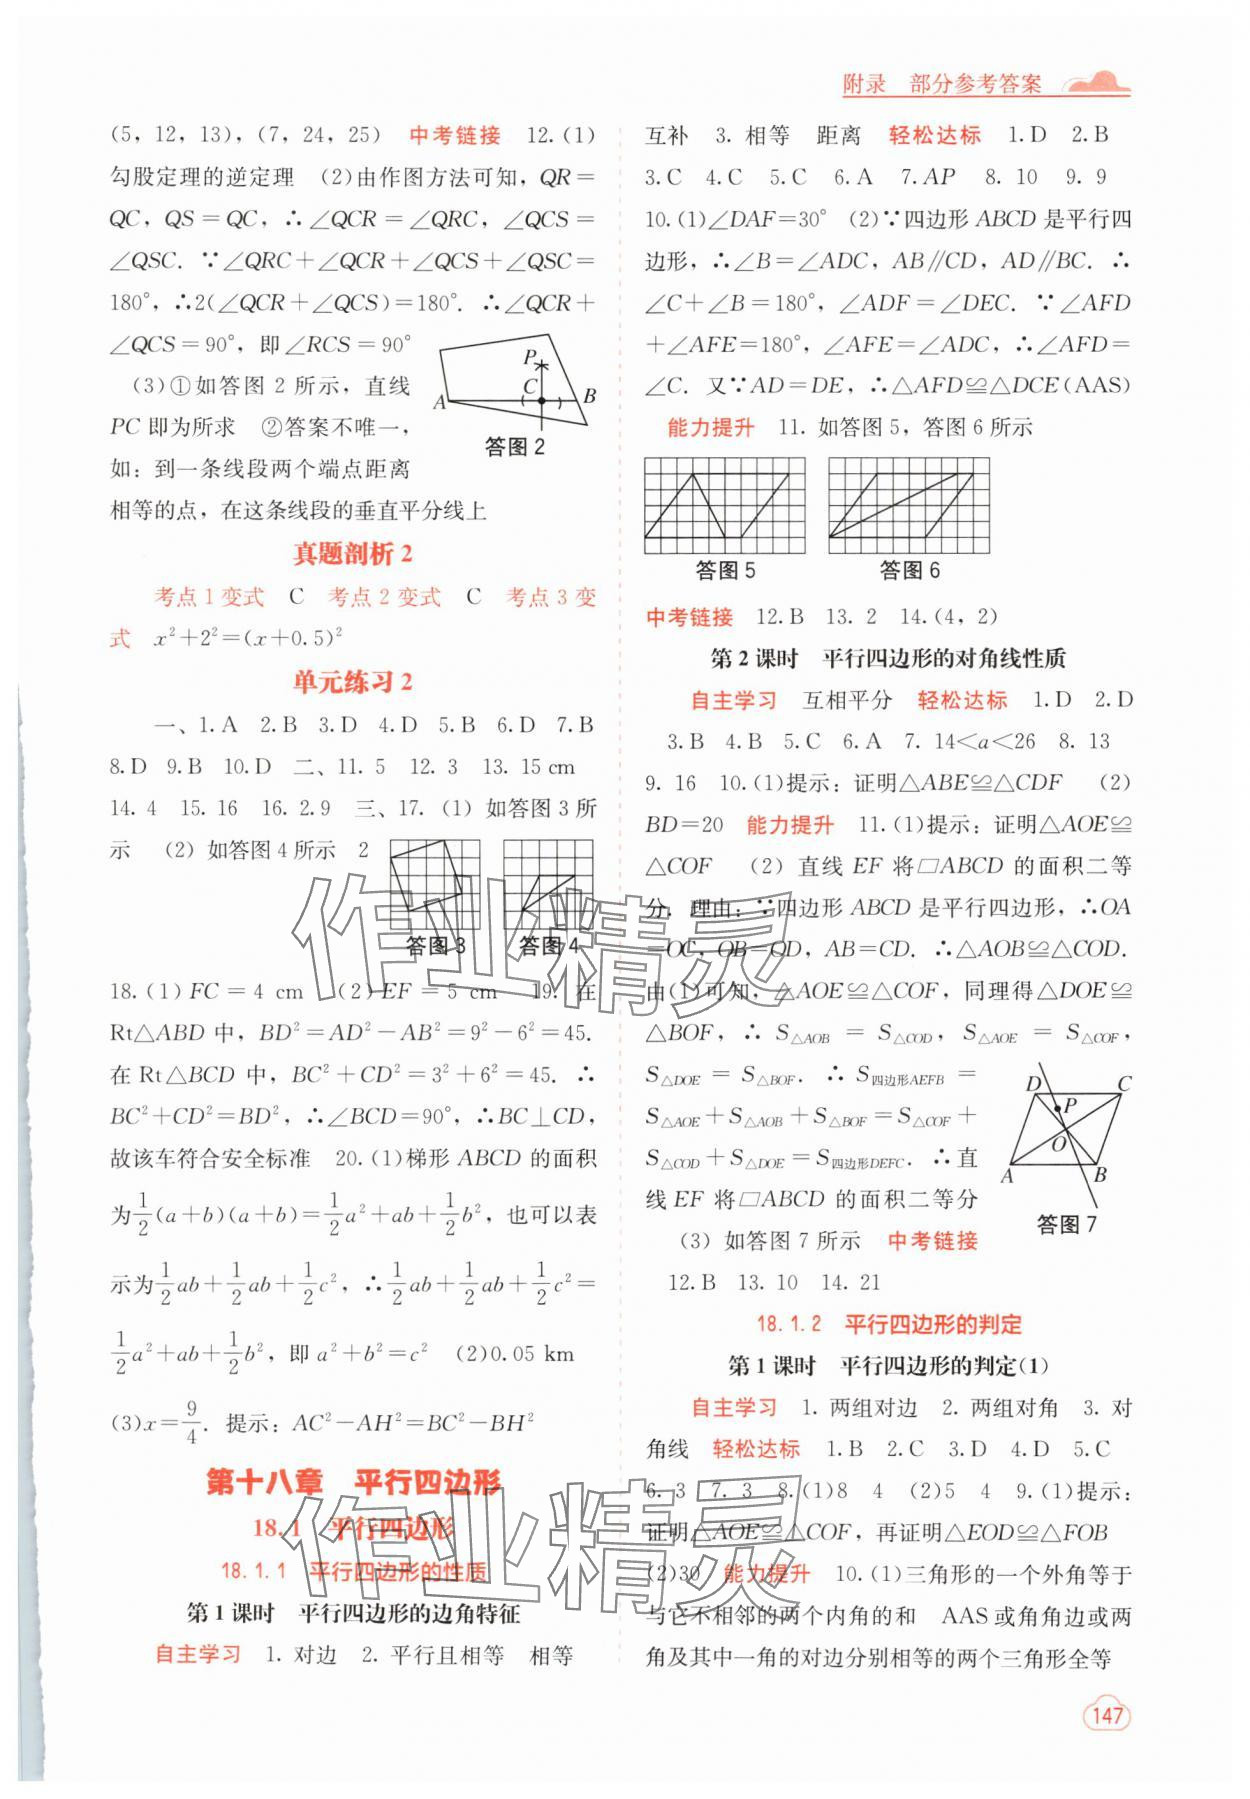 附录 部分参考答案
(5, 12, 13), (7, 24, 25) 中考链接 12.(1)
勾股定理的逆定理 (2)由作图方法可知, QR=
QC, QS=QC, ∴∠QCR=∠QRC, ∠QCS=
∠QSC. ∵∠QRC+∠QCR+∠QCS+∠QSC=
180°, ∴2(∠QCR+∠QCS)=180°. ∴∠QCR+
∠QCS=90°, 即∠RCS=90°
(3)①如答图 2 所示, 直线
PC 即为所求 ②答案不唯一,
如: 到一条线段两个端点距离
相等的点, 在这条线段的垂直平分线上
P
C
A
B
答图 2
真题剖析 2
考点 1 变式 C 考点 2 变式 C 考点 3 变
式 x²+2²=(x+0.5)²
单元练习 2
一、1. A 2. B 3. D 4. D 5. B 6. D 7. B
8. D 9. B 10. D 二、11. 5 12. 3 13. 15 cm
14. 4 15. 16 16. 2.9 三、17. (1) 如答图 3 所
示 (2) 如答图 4 所示 2
答图 3 答图 4
18. (1) FC=4 cm (2) EF=5 cm 19. 在
Rt△ABD 中, BD²=AD²-AB²=9²-6²=45.
在 Rt△BCD 中, BC²+CD²=3²+6²=45. ∴
BC²+CD²=BD², ∴∠BCD=90°, ∴BC⊥CD,
故该车符合安全标准 20. (1)梯形 ABCD 的面积
为1/2(a+b)(a+b)=1/2a²+ab+1/2b², 也可以表
示为1/2ab+1/2ab+1/2c², ∴1/2ab+1/2ab+1/2c²=
1/2a²+ab+1/2b², 即 a²+b²=c² (2)0.05 km
(3)x=9/4. 提示: AC²-AH²=BC²-BH²
第十八章 平行四边形
18.1 平行四边形
18.1.1 平行四边形的性质
第 1 课时 平行四边形的边角特征
自主学习 1. 对边 2. 平行且相等 相等
互补 3. 相等 距离 轻松达标 1. D 2. B
3. C 4. C 5. C 6. A 7. AP 8. 10 9. 9
10. (1)∠DAF=30° (2)∵四边形 ABCD 是平行四
边形, ∴∠B=∠ADC, AB∥CD, AD∥BC. ∴
∠C+∠B=180°, ∠ADF=∠DEC. ∵∠AFD
+∠AFE=180°, ∠AFE=∠ADC, ∴∠AFD=
∠C. 又∵AD=DE, ∴△AFD≌△DCE(AAS)
能力提升 11. 如答图 5, 答图 6 所示
答图 5 答图 6
中考链接 12. B 13. 2 14. (4, 2)
第 2 课时 平行四边形的对角线性质
自主学习 互相平分 轻松达标 1. D 2. D
3. B 4. B 5. C 6. A 7. 14<a<26 8. 13
9. 16 10. (1)提示: 证明△ABE≌△CDF (2)
BD=20 能力提升 11. (1)提示: 证明△AOE≌
△COF (2) 直线 EF 将□ABCD 的面积二等
分. 理由: ∵四边形 ABCD 是平行四边形, ∴OA
=OC, OB=OD, AB=CD. ∴△AOB≌△COD.
由(1)可知, △AOE≌△COF, 同理得△DOE≌
△BOF, ∴ S△AOB = S△COD, S△AOE = S△COF,
S△DOE = S△BOF. ∴ S四边形AEFB =
S△AOE+S△AOB+S△BOF=S△COF+
S△COD+S△DOE=S四边形DEFC. ∴直
线 EF 将□ABCD 的面积二等分
D
C
P
O
A
B
答图 7
(3) 如答图 7 所示 中考链接
12. B 13. 10 14. 21
18.1.2 平行四边形的判定
第 1 课时 平行四边形的判定(1)
自主学习 1. 两组对边 2. 两组对角 3. 对
角线 轻松达标 1. B 2. C 3. D 4. D 5. C
6. 3 7. 3 8. (1)8 4 (2)5 4 9. (1)提示:
证明△AOE≌△COF, 再证明△EOD≌△FOB
(2)30 能力提升 10. (1)三角形的一个外角等于
与它不相邻的两个内角的和 AAS或角角边或两
角及其中一角的对边分别相等的两个三角形全等
作业精灵
作业精灵
147